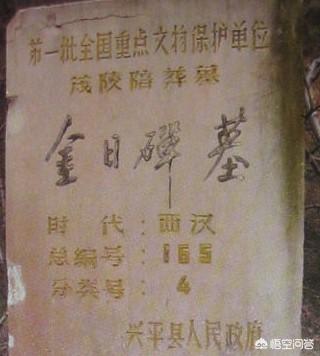 第一批全国重点文物保护单位
茂陵陪葬墓
金日磾墓
时代：西汉
总编号：165
分类号：4
兴平县人民政府
悟空问答